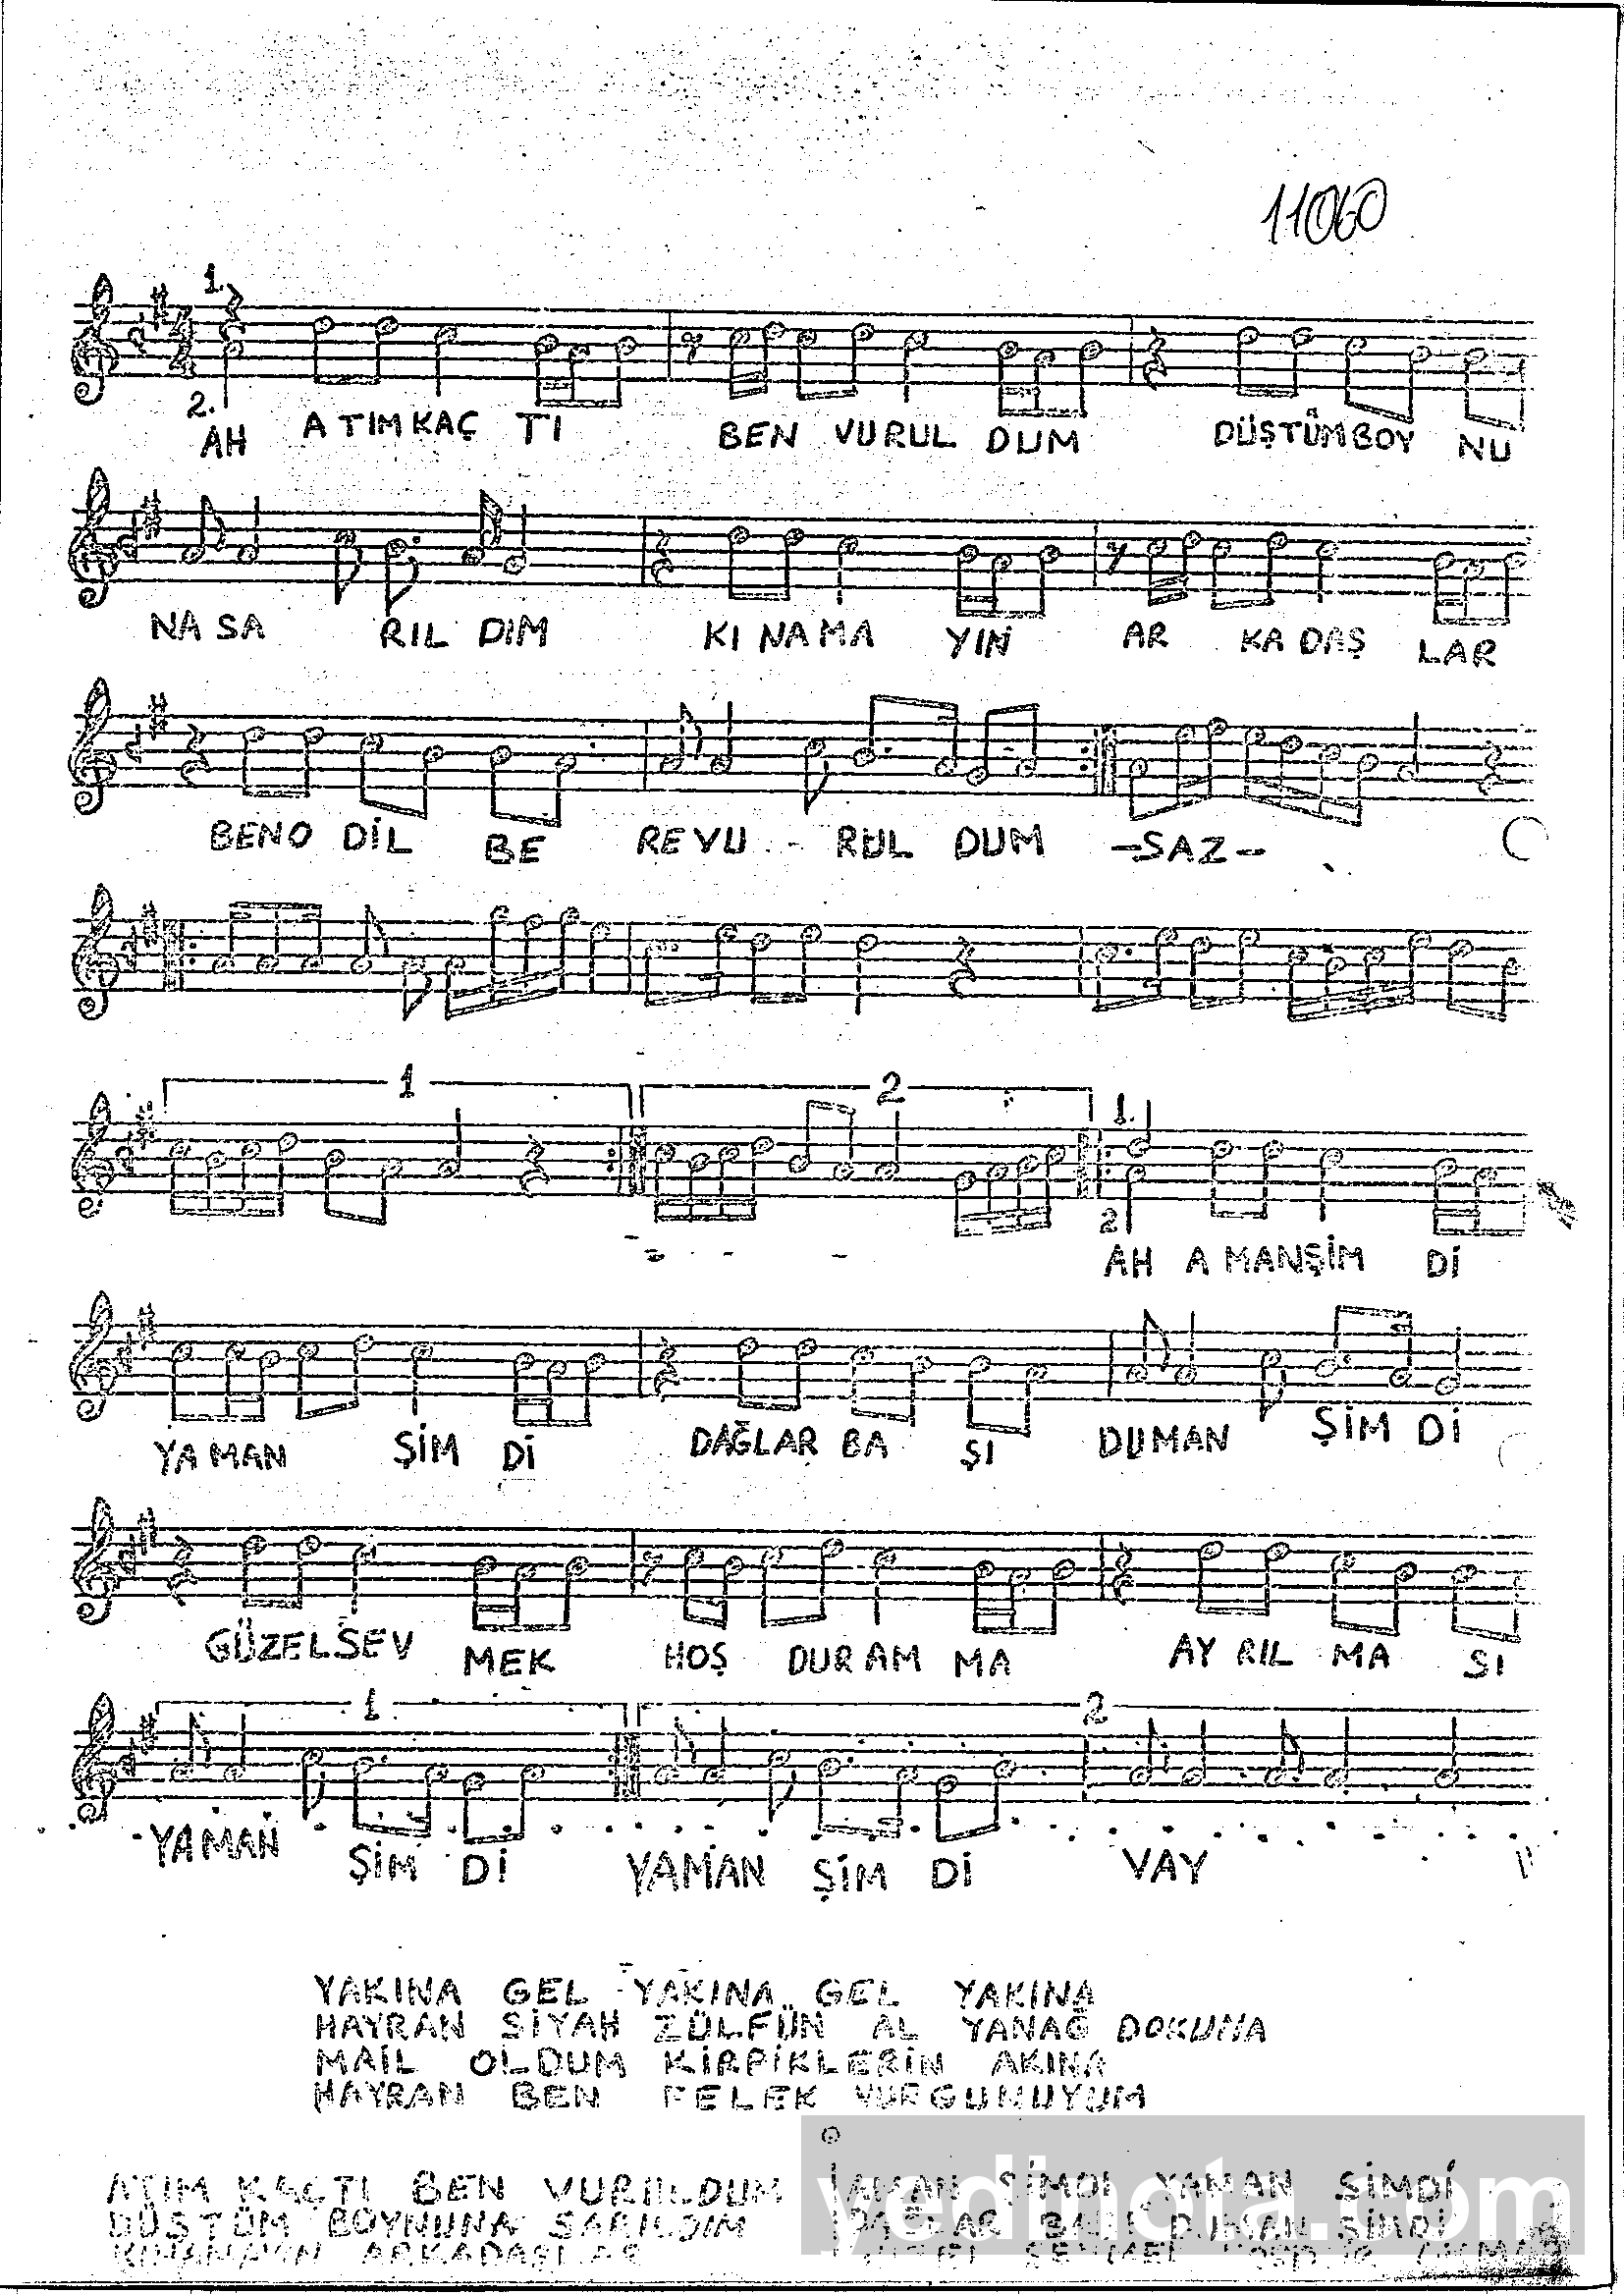 11060
1.
2.
AH A TIM KAÇ TI BEN VURUL DUM DÜŞTÜM BOY NU
NA SA RIL DIM KI NA MA YIN AR KA DAŞ LAR
BENO DİL BE REVU - RUL DUM -SAZ-
1 2 1.
2
AH A MANŞİM Dİ
YA MAN ŞİM Dİ DAĞLAR BA ŞI DUMAN ŞİM Dİ
GÜZELSEV MEK HOŞ DUR AM MA AY RIL MA SI
1 2
YAMAN ŞİM Dİ YAMAN ŞİM Dİ VAY
YAKINA GEL YAKINA GEL YAKINA
HAYRAN SİYAH ZÜLFÜN AL YANAĞ DOKUNA
MAİL OLDUM KİRPİKLERİN AKINA
HAYRAN BEN FELEK VURGUNUYUM
ATIM KAÇTI BEN VURULDUM AMAN ŞİMDİ YAMAN ŞİMDİ
DÜŞTÜM BOYNUNA SARILDIM DAĞLAR BAŞI DUMAN ŞİMDİ
KINAMAYIN ARKADAŞLAR
yedinota.com